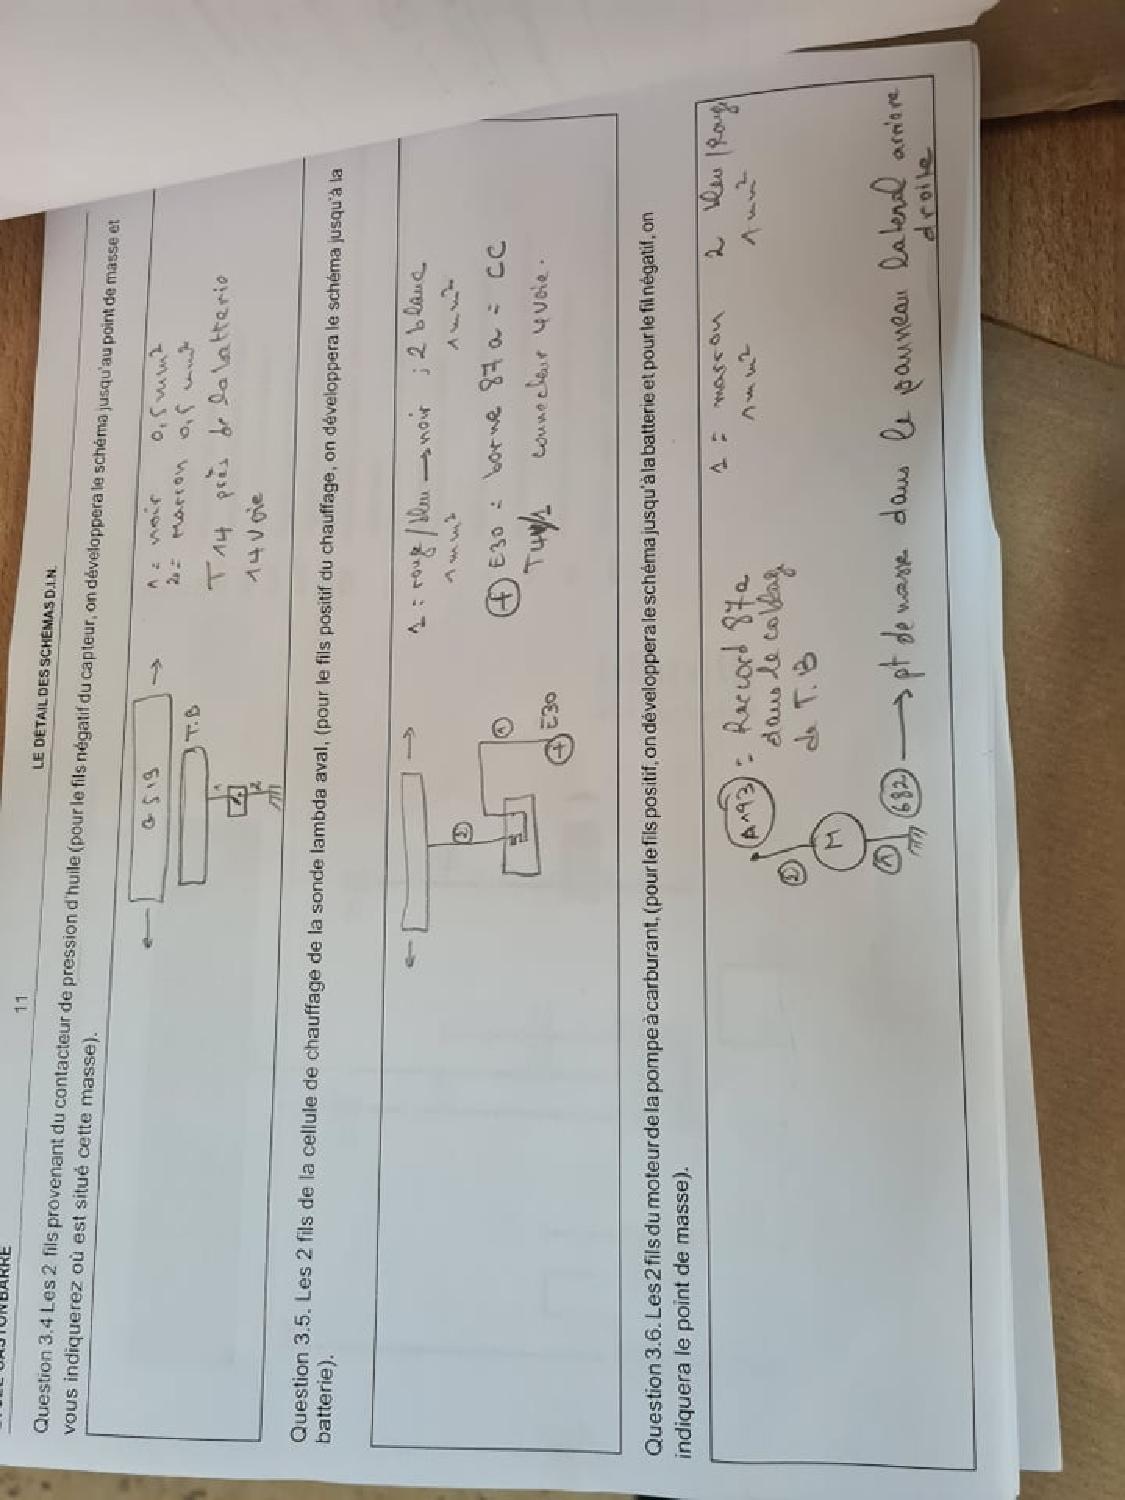 11
LE DETAIL DES SCHEMAS D.I.N.
Question 3.4 Les 2 fils provenant du contacteur de pression d'huile (pour le fils négatif du capteur, on développera le schéma jusqu'au point de masse et
vous indiquerez où est situé cette masse).
← G519 →
T.B
1
2
1 = noir 0,5 mm²
2 = marron 0,5 mm²
T14 près de la batterie
14 voie
Question 3.5. Les 2 fils de la cellule de chauffage de la sonde lambda aval, (pour le fils positif du chauffage, on développera le schéma jusqu'à la
batterie).
← →
2
1
+ E30
1 = rouge/bleu → noir ; 2 blanc
1 mm² 1 mm²
+ E30 = borne 87a = CC
connecteur 4 voie.
Question 3.6. Les 2 fils du moteur de la pompe à carburant, (pour le fils positif, on développera le schéma jusqu'à la batterie et pour le fil négatif, on
indiquera le point de masse).
2
A193 = Raccord 87a
dans le cablage
de T.B
M
1
1 = marron 2 bleu/Rouge
1 mm² 1 mm²
682 → pt de masse dans le panneau lateral arriere
droite